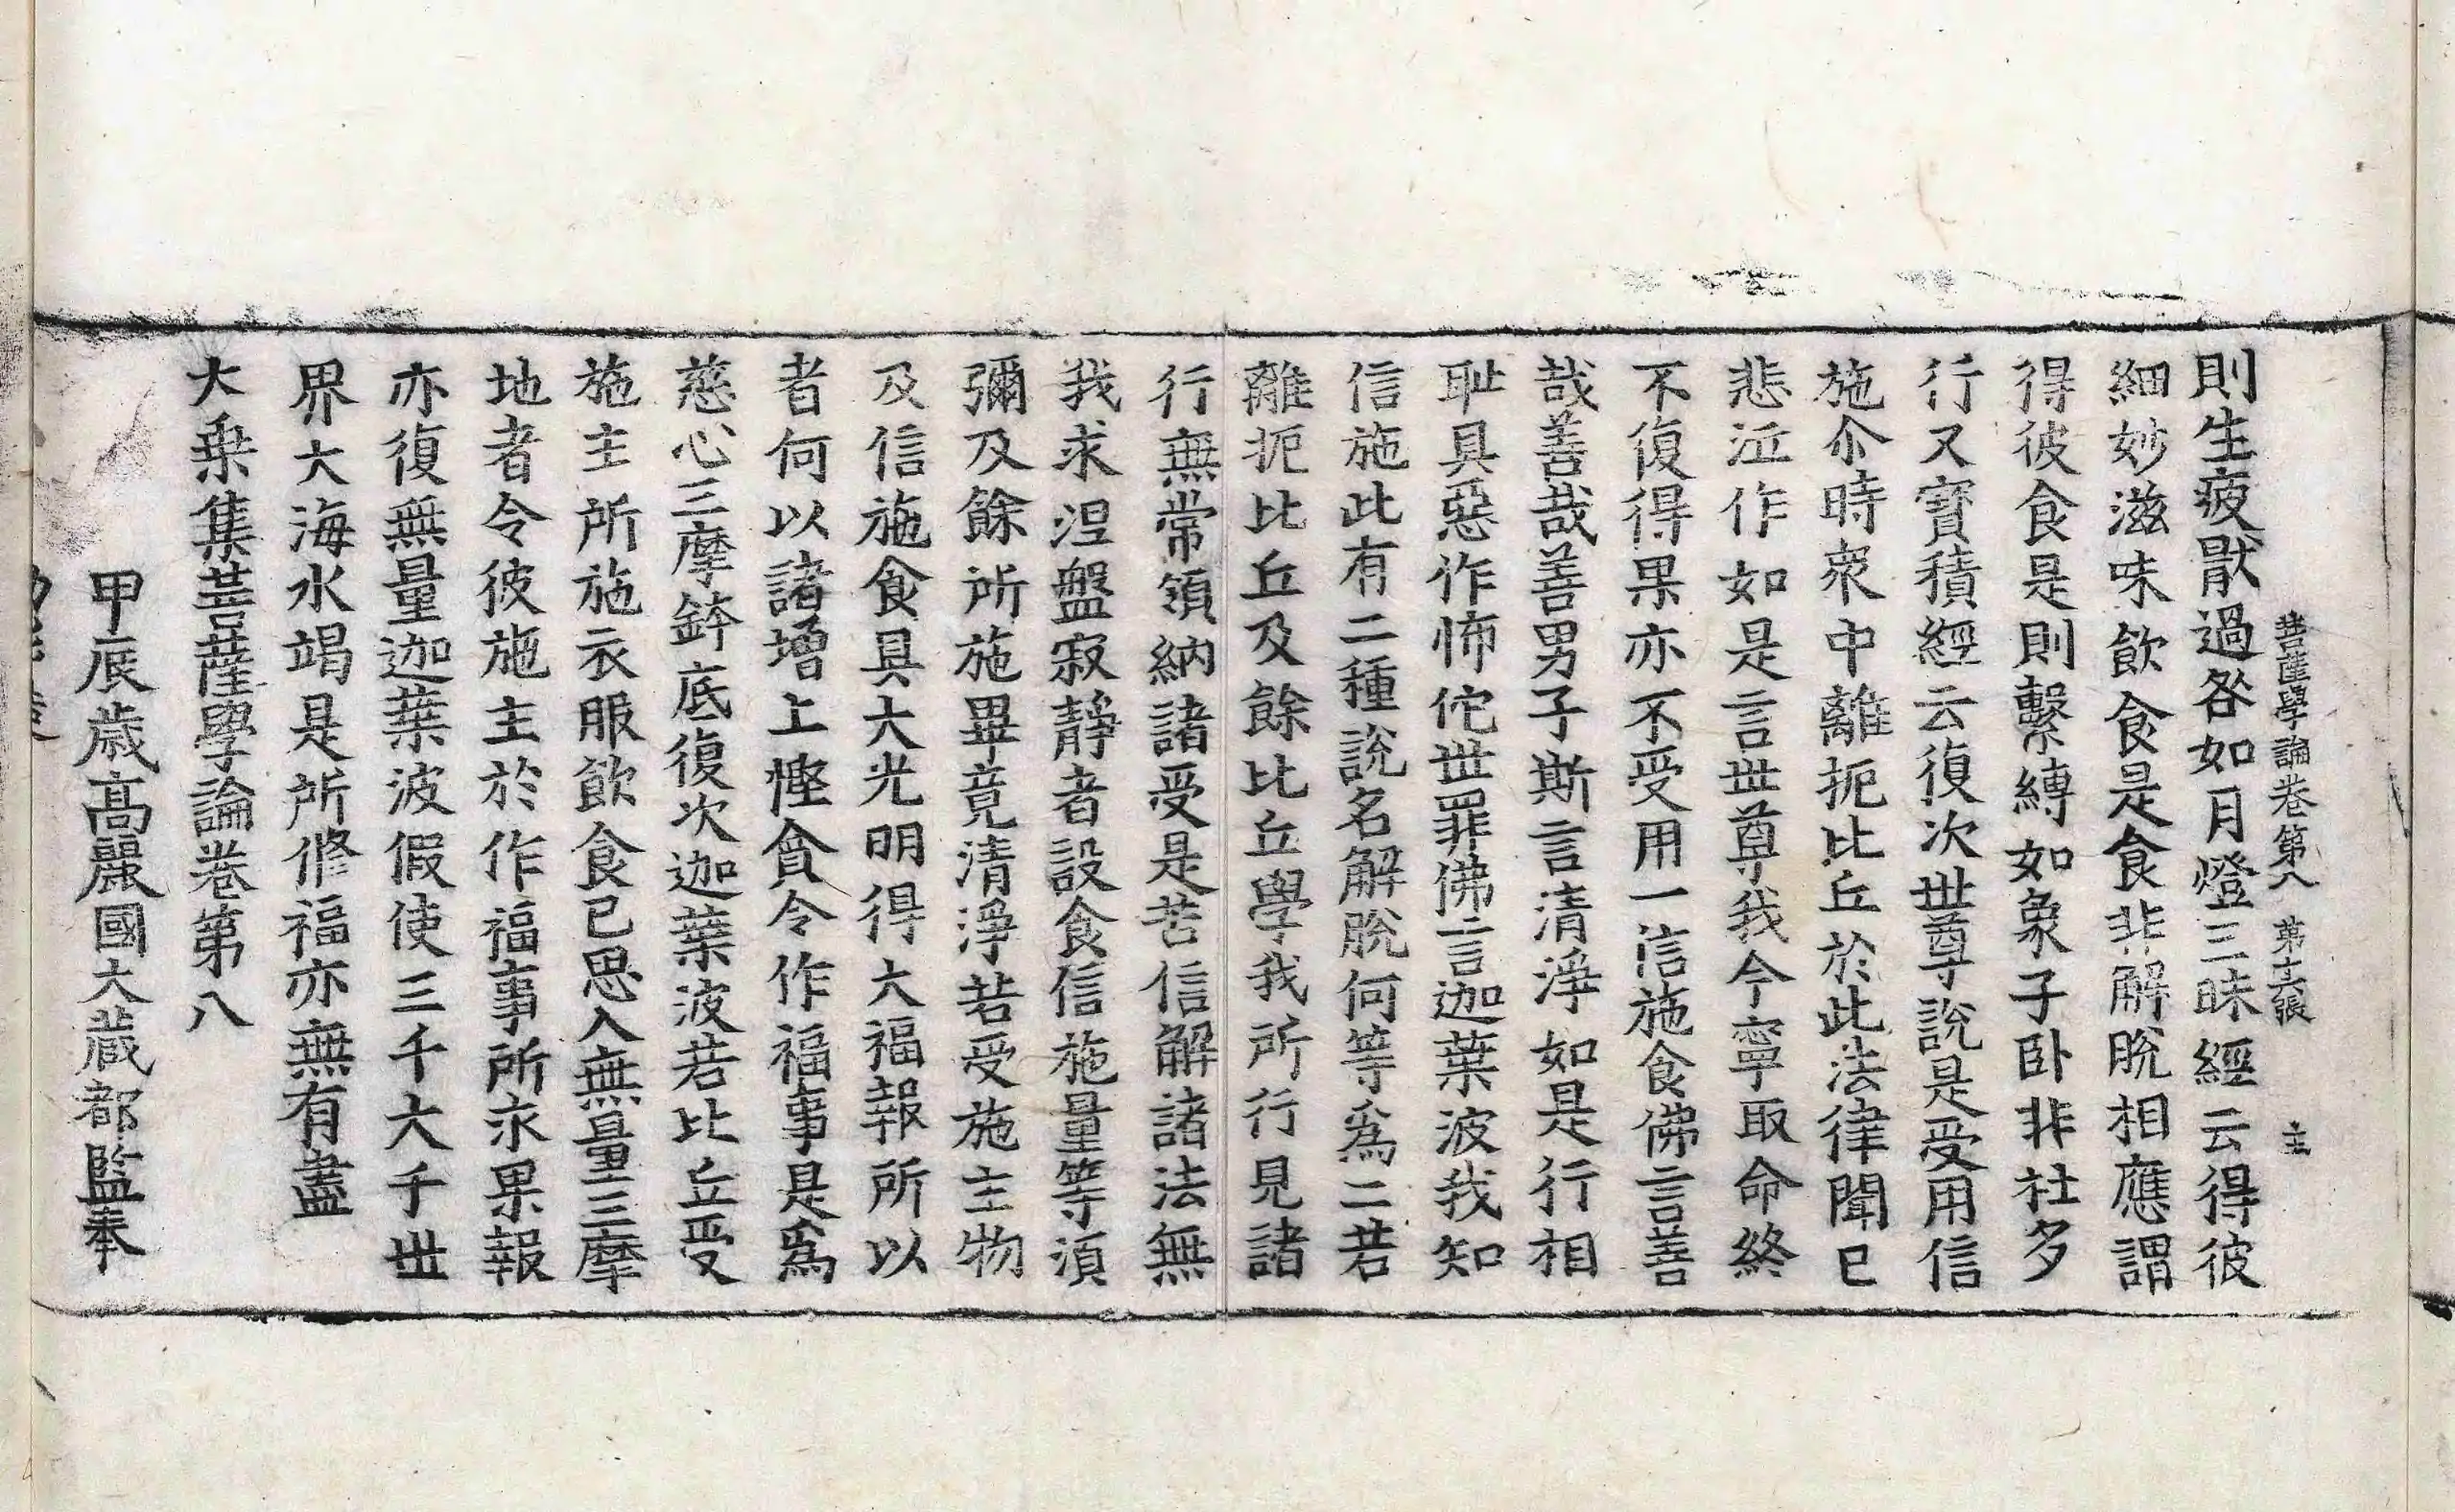 菩薩學論卷第八 第十六張 主
則生疲猒過咎如月燈三昧經云得彼
細妙滋味飲食是食非解脫相應謂
得彼食是則繫縛如象子卧非社多
行又寶積經云復次世尊說是受用信
施尒時衆中離扼比丘於此法律聞已
悲泣作如是言世尊我今寧取命終
不復得果亦不受用一信施食佛言善
哉善哉善男子斯言清淨如是行相
耻具惡作怖佗世罪佛言迦葉波我知
信施此有二種說名解脫何等爲二若
離扼比丘及餘比丘學我所行見諸
行無常領納諸受是苦信解諸法無
我求涅盤寂靜者設食信施量等湏
彌及餘所施畢竟清淨若受施主物
及信施食具大光明得大福報所以
者何以諸增上慳貪令作福事是爲
慈心三摩鉢底復次迦葉波若比丘受
施主所施衣服飲食已思入無量三摩
地者令彼施主於作福事所求果報
亦復無量迦葉波假使三千大千世
界大海水竭是所修福亦無有盡
大乗集菩薩學論卷第八
甲辰歲高麗國大藏都監奉